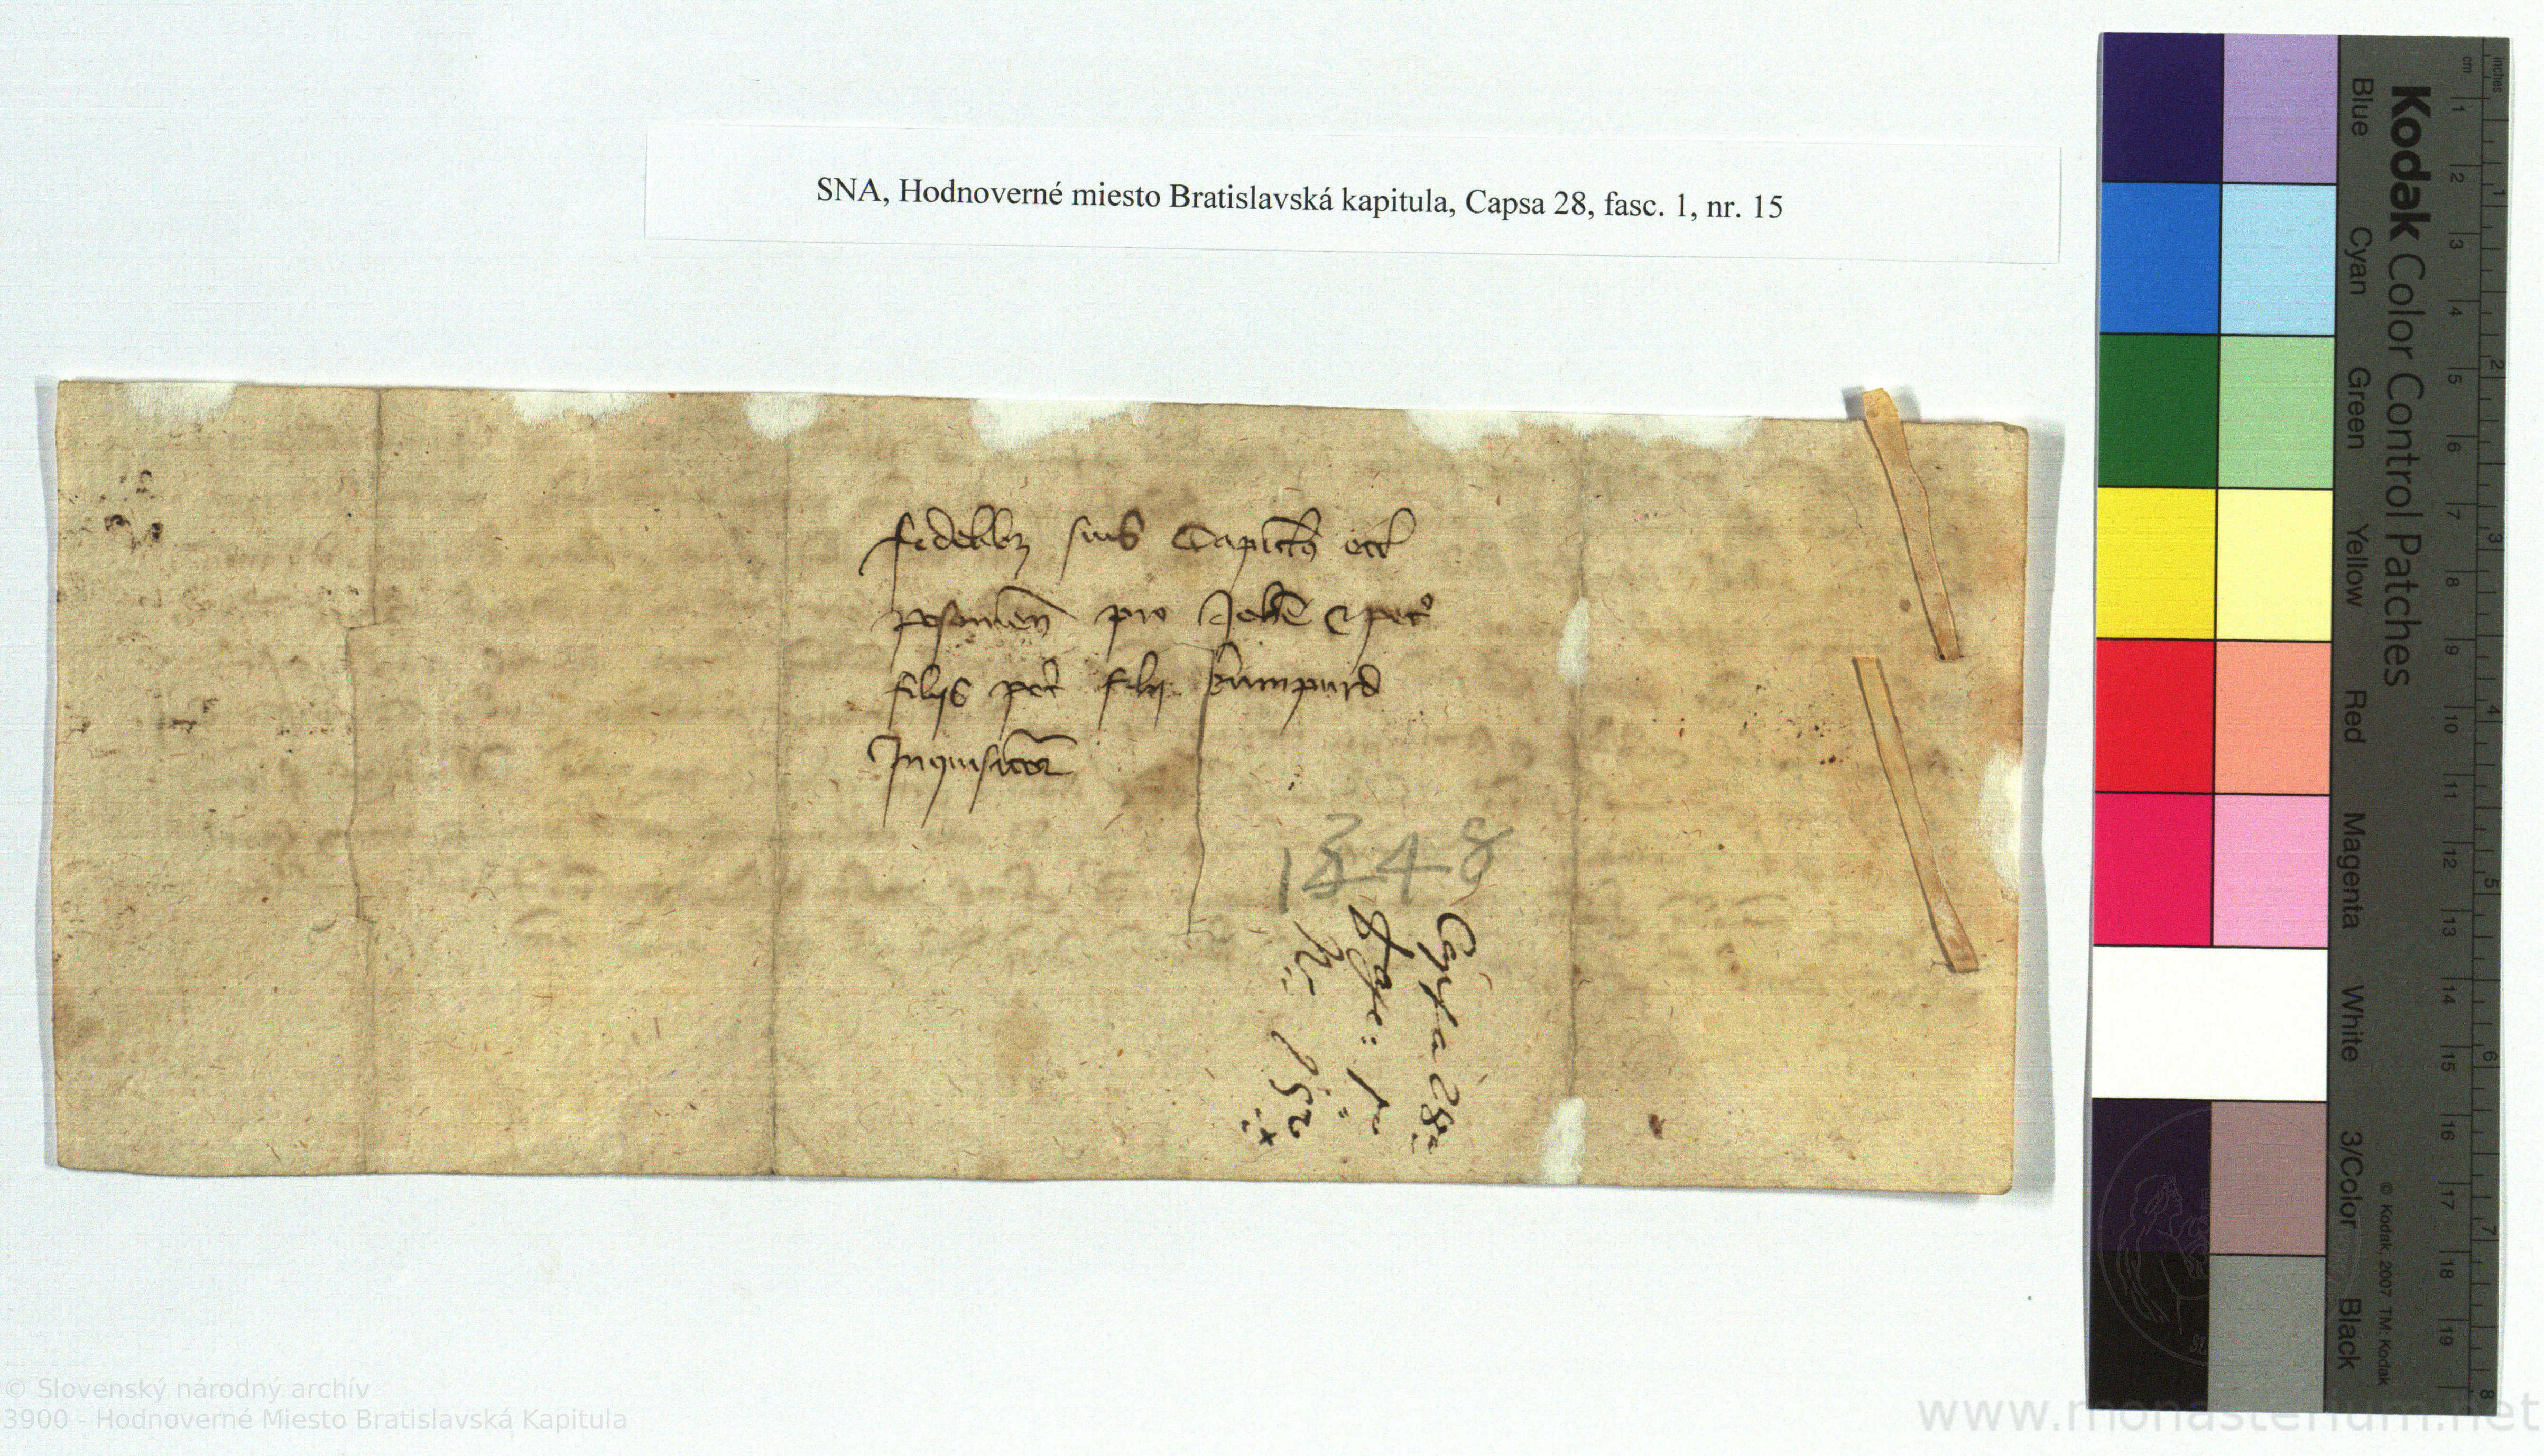 SNA, Hodnoverné miesto Bratislavská kapitula, Capsa 28, fasc. 1, nr. 15
fidelibz suis Capitlo eccl
posonien pro Johe & petro
filijs pet filij kumpurd
Inquisitor
1348
Capsa 28a
Fasc: 1
Nr 15
Kodak Color Control Patches
Blue Cyan Green Yellow Red Magenta White 3/Color Black
© Kodak, 2007 TM: Kodak
cm 1 2 3 4 5 6 7 8 9 10 11 12 13 14 15 16 17 18 19
inches 1 2 3 4 5 6 7 8
© Slovenský národný archív
3900 - Hodnoverné Miesto Bratislavská Kapitula
www.monasterium.net